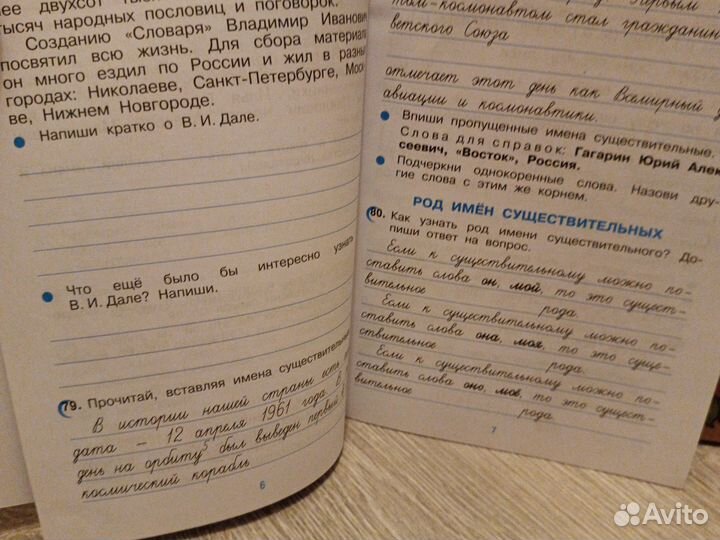 ее двухсот
тысяч народных пословиц и поговорок.
Созданию «Словаря» Владимир Иванович
посвятил всю жизнь. Для сбора материал
он много ездил по России и жил в разны
городах: Николаеве, Санкт-Петербурге, Моск
ве, Нижнем Новгороде.
Напиши кратко о В. И. Дале.
Что ещё было бы интересно узнать
В. И. Дале? Напиши.
79. Прочитай, вставляя имена существительны
В истории нашей страны есть
дата – 12 апреля 1961 года. В
день на орбиту⁵ был выведен первый
космический корабль
6
том-космонавтом стал гражданин
ветского Союза
отмечает этот день как Всемирный
авиации и космонавтики.
Впиши пропущенные имена существительные.
Слова для справок: Гагарин Юрий Алек
сеевич, «Восток», Россия.
Подчеркни однокоренные слова. Назови дру-
гие слова с этим же корнем.
РОД ИМЁН СУЩЕСТВИТЕЛЬНЫХ
80. Как узнать род имени существительного? До-
пиши ответ на вопрос.
Если к существительному можно по-
ставить слова он, мой, то это сущест-
вительное рода.
Если к существительному можно по-
ставить слова она, моя, то это суще-
ствительное рода.
Если к существительному можно по-
ставить слова оно, моё, то это сущест-
вительное рода.
7
Avito